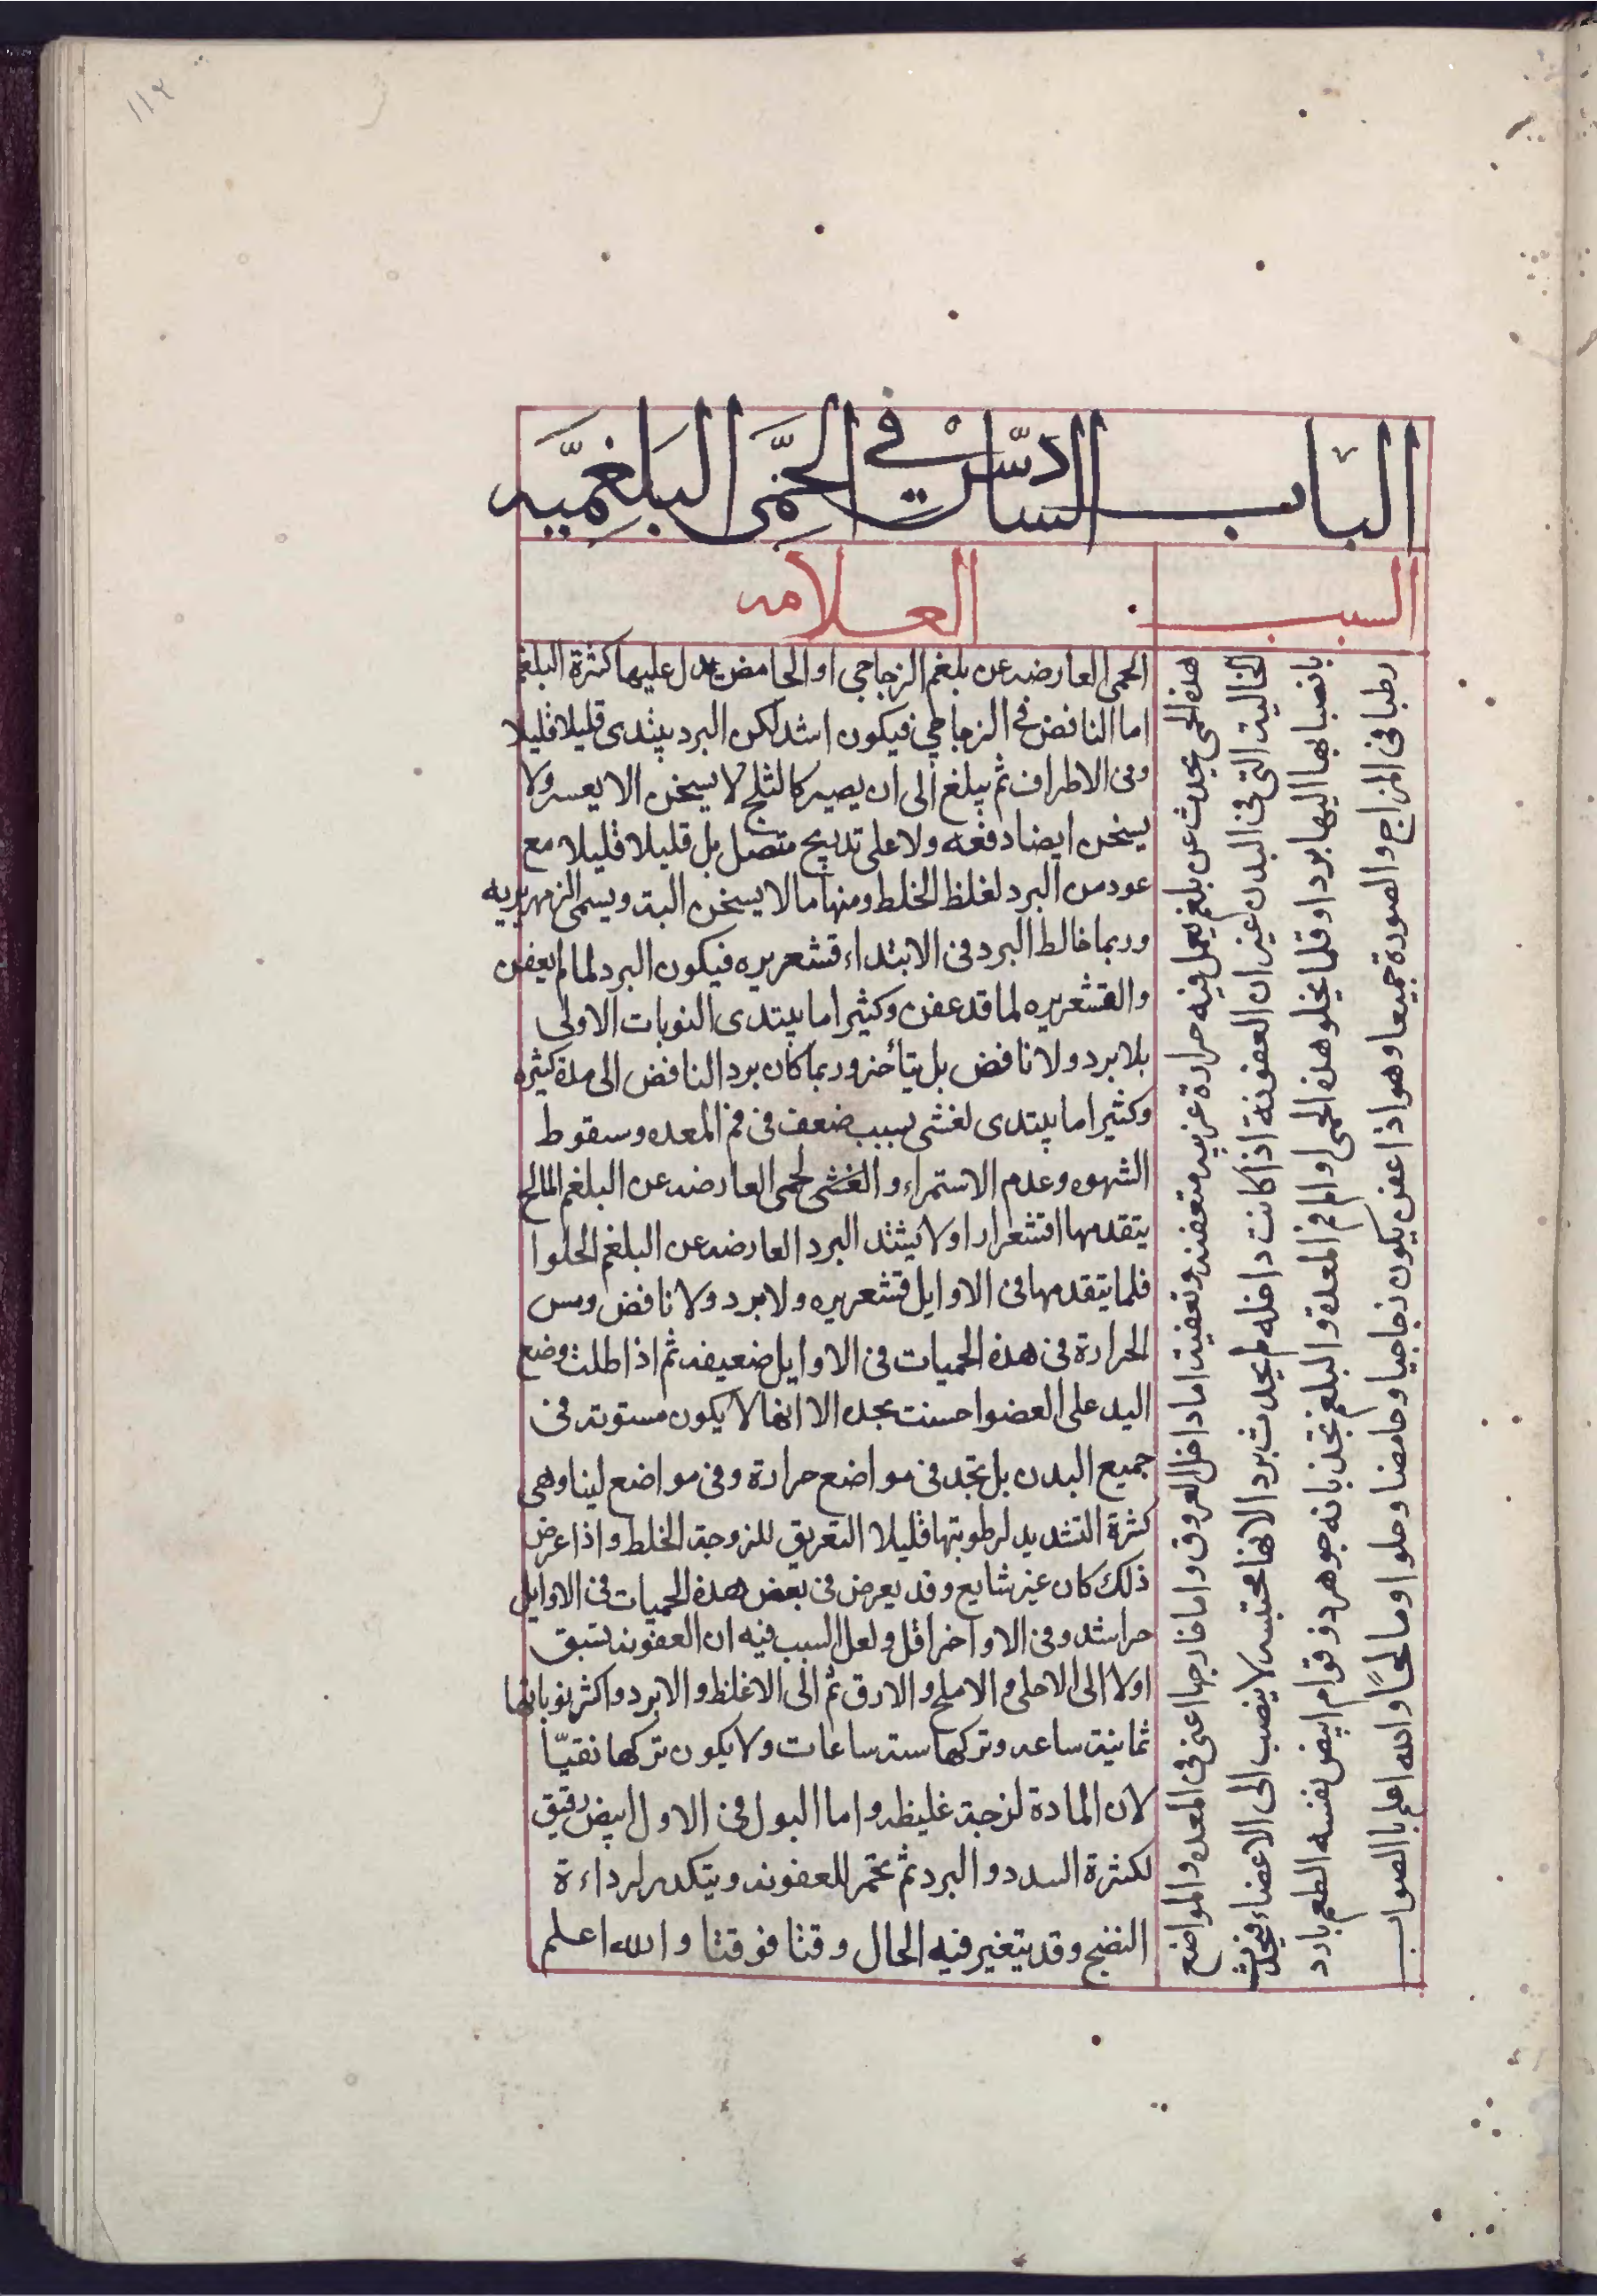 ١١٢
الباب السادس في الحمى البلغميه
السبب
العلامه
هذه الحمى يحدث عن بلغم يعمل فيه حرارة غريبه متعفنه وتعفينه اما داخل العروق واما خارجها اعنى فى المعده والمواضع
الخالية التى فى البدن غير ان العفونة اذا كانت داخله لم يحدث برد الا انها محتبسه لا ينصب الى الاعضاء فيحدث
بانصبابها اليها بردا وقلما يخلو هذه الحمى او الم فم المعدة والبلغم نجد بانه جوهر ذو قوام ابيض نفسه الطعم بارد
رطبا فى المزاج والصورة جميعا وهو اذا عفن يكون زجاجيا وحامضا وحلوا ومالحاً والله اعلم با الصواب
الحمى العارضه عن بلغم الزجاجي او الحامض يدل عليها كثرة البلغم
اما النافض فى الزجاجي فيكون اشد لكن البرد يبتدى قليلا قليلا
وفى الاطراف ثم يبلغ الى ان يصير كالثلج لا يسخن الا يعسر ولا
يسخن ايضا دفعه ولا على تدريج متصل بل قليلا قليلا مع
عود من البرد لغلظ الخلط ومنها ما لا يسخن البته ويسمى الزمهريريه
وربما خالط البرد فى الابتداء قشعريره فيكون البرد لما لم يعفن
والقشعريره لما قد عفن وكثيرا ما يبتدى النوبات الاولى
بلا برد ولا نافض بل يتأخر وربما كان برد النافض الى مدة كثيره
وكثيرا ما يبتدى لغشى بسبب ضعف فى فم المعده وسقوط
الشهوه وعدم الاستمراء والغشى لحمى العارضه عن البلغم المالح
يتقدمها اقشعرارا ولا يشتد البرد العارضه عن البلغم الحلوا
فلما يتقدمها فى الاوايل قشعريره ولا برد ولا نافض ومس
الحرارة فى هذه الحميات فى الاوايل ضعيفه ثم اذا طلت وضع
اليد على العضوا حسنت بحده الا انها لا يكون مستويه فى
جميع البدن بل تجد فى مواضع حرارة وفى مواضع لينا وهى
كثرة التشديد لرطوبتها قليلا التعريق للزوجة الخلط واذا عرض
ذلك كان غير شايع وقد يعرض فى بعض هذه الحميات فى الاوايل
حر اشد وفى الاواخر اقل ولعل السبب فيه ان العفونه تسبق
اولا الى الاحلى والاملح والارق ثم الى الاغلظ والابرد واكثر نوباتها
ثمانية ساعه وتركها سته ساعات ولا يكون تركها نقيّا
لان المادة لزجة غليظه واما البول فى الاول ابيض رقيق
لكثرة السدد والبرد ثم تحمر للعفونه ويتكدر لرداءة
النضج وقد يتغير فيه الحال وقتا فوقتا والله اعلم